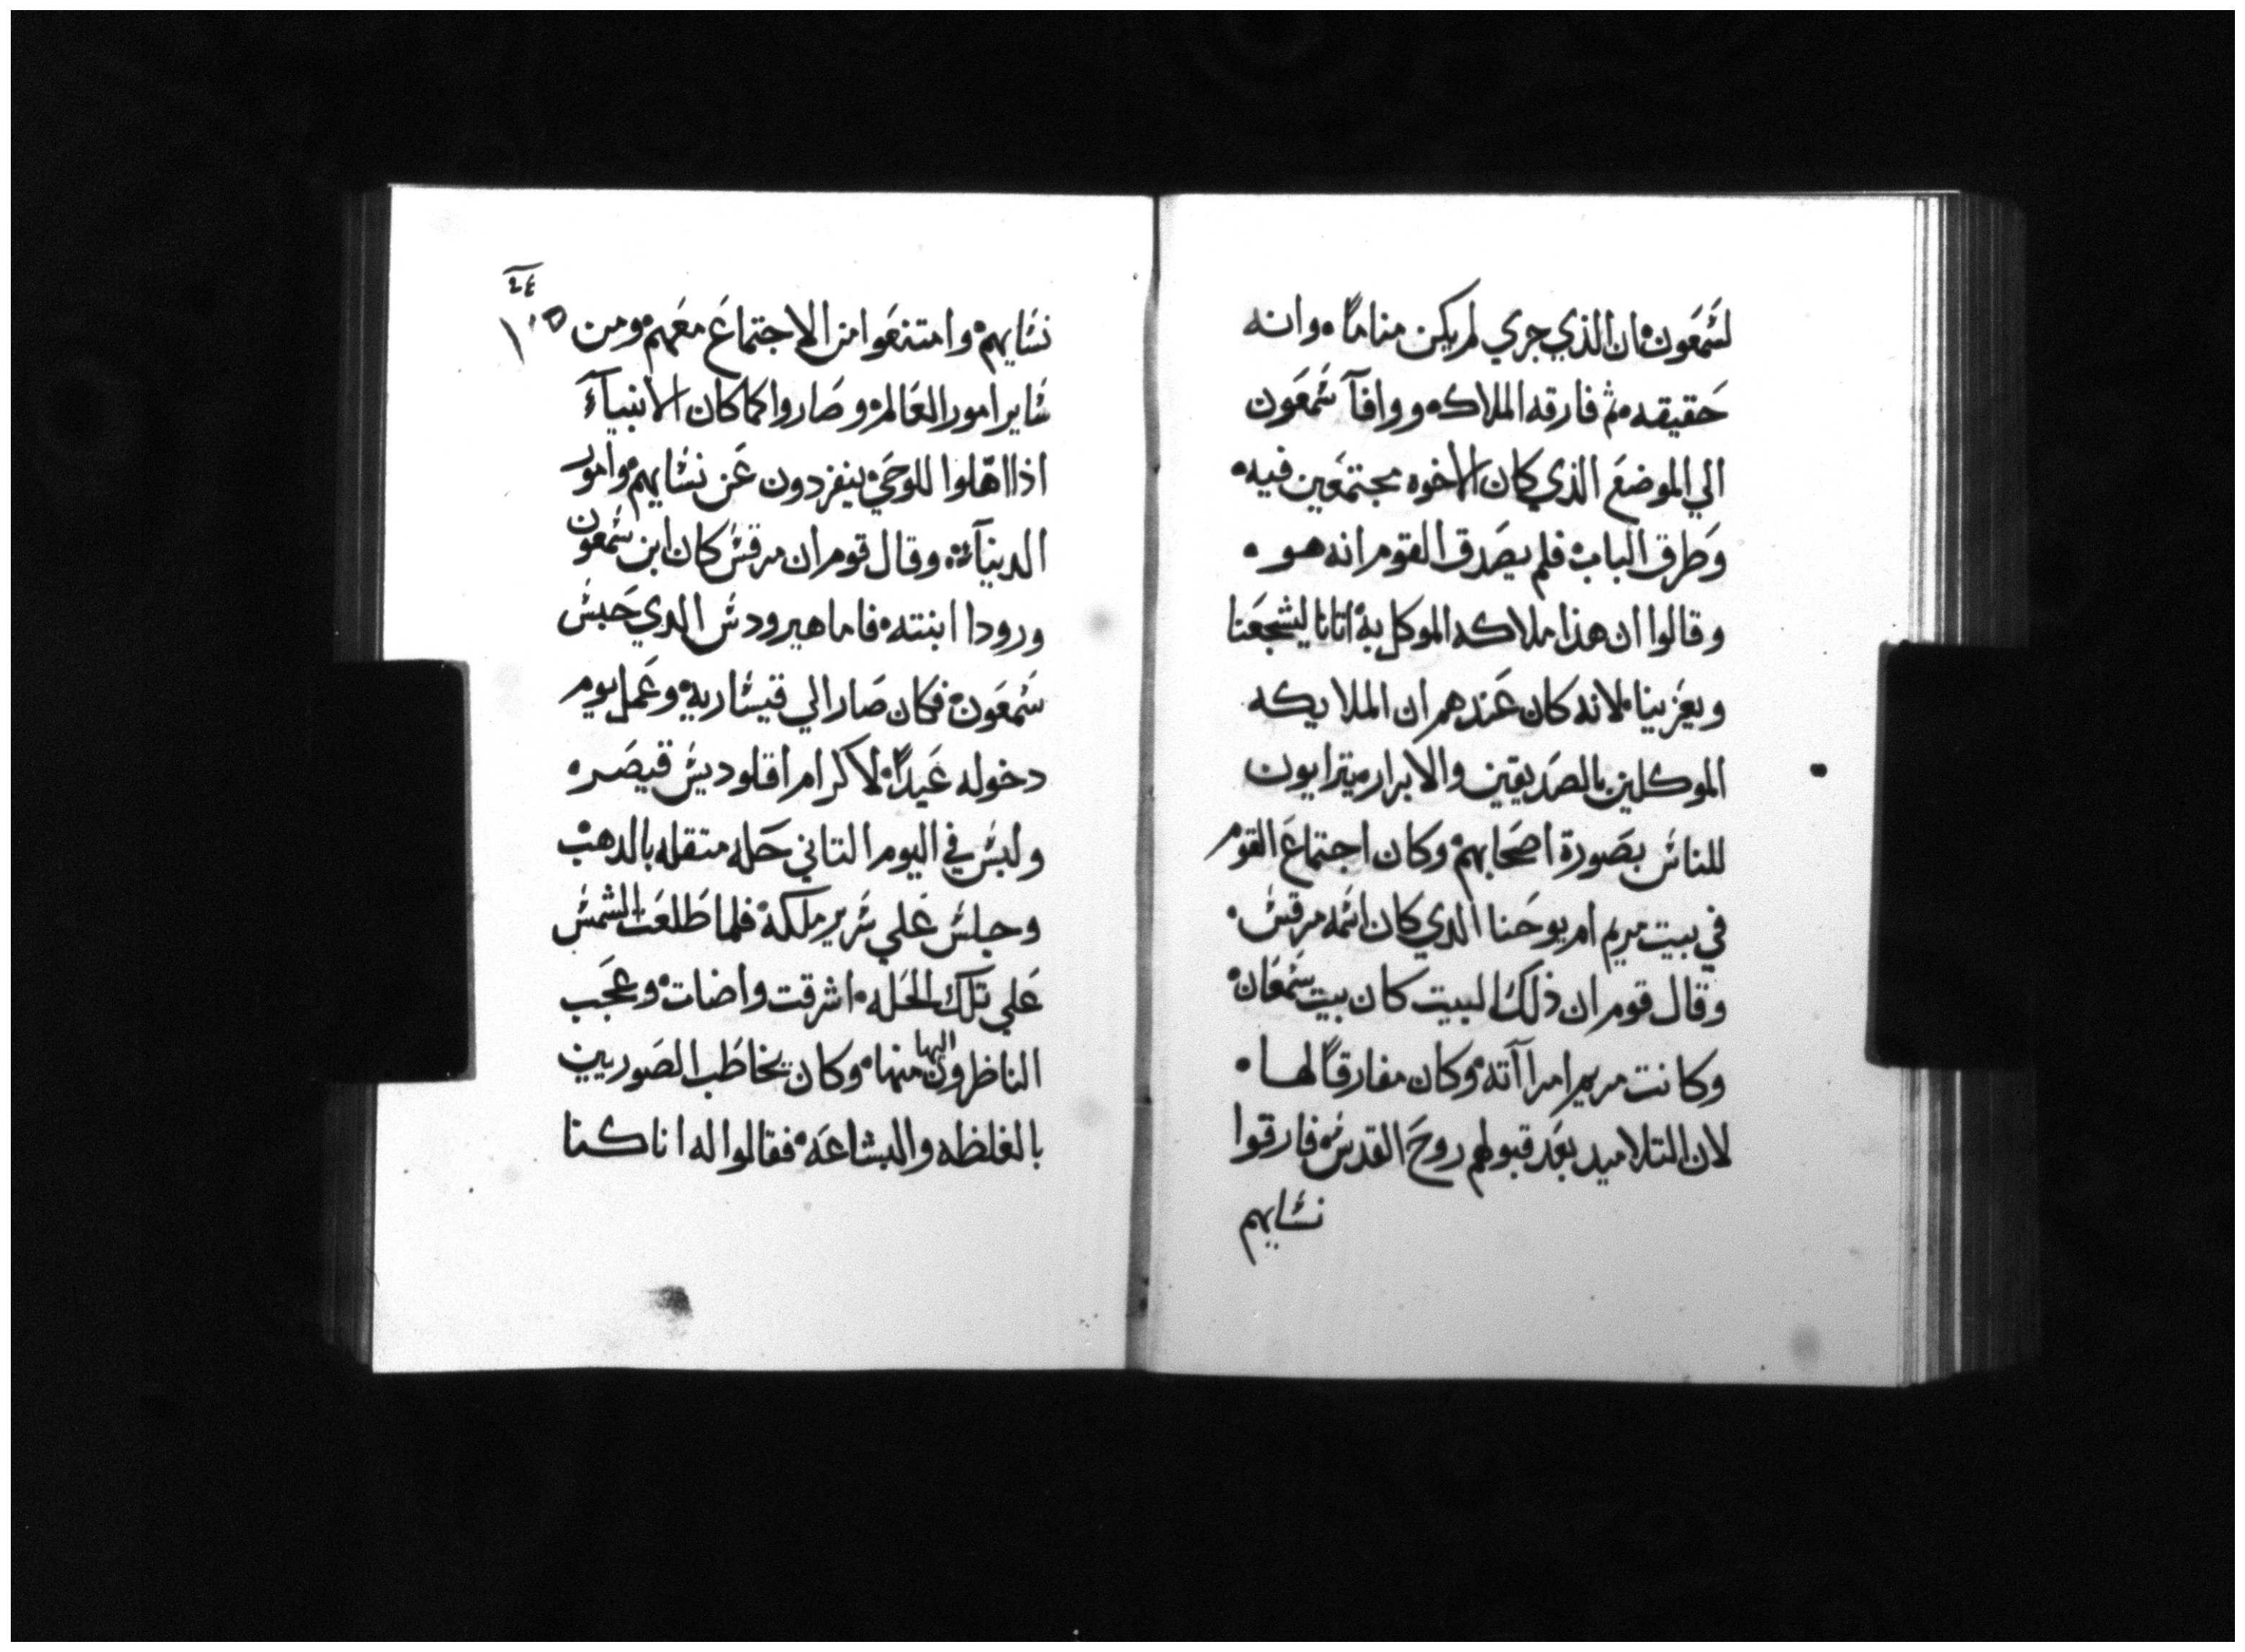 لشمعون ان الذي جري لم يكن مناماً وانه
حقيقه ثم فارقه الملاك ووافآ شمعون
الي الموضع الذي كان الاخوه مجتمعين فيه
وطرق الباب فلم يصدق القوم انه هو
وقالوا ان هذا ملاكه الموكل به اتانا ليشجعنا
ويعزينا لانه كان عندهم ان الملايكه
الموكلين بالصديقين والابرار يترايون
للناس بصورة اصحابهم وكان اجتماع القوم
في بيت مريم ام يوحنا الدي كان اسمه مرقس
وقال قوم ان ذلك البيت كان بيت سمعان
وكانت مريم امراآته وكان مفارقاً لها
لان التلاميد بعد قبولهم روح القدس فارقوا
نسايهم
نسايهم وامتنعوا من الاجتماع معهم ومن
ساير امور العالم وصاروا كما كان الانبيآء
اذا اهّلوا للوحي ينفردون عن نسايهم وامور
الدنيآء وقال قوم ان مرقس كان ابن شمعون
ورودا ابنته فاما هيرودس الدي حبس
شمعون فكان صار الي قيساريه وعمل يوم
دخوله عيداً لاكرام اقلوديس قيصر
ولبس في اليوم التاني حله متقله بالدهب
وجلس علي سرير ملكه فلما طلعت الشمس
علي تلك الحله اشرقت واضات وعجب
الناظرون اليها منها وكان يخاطب الصوريين
بالغلظه والبشاعه فقالوا له اننا كنا